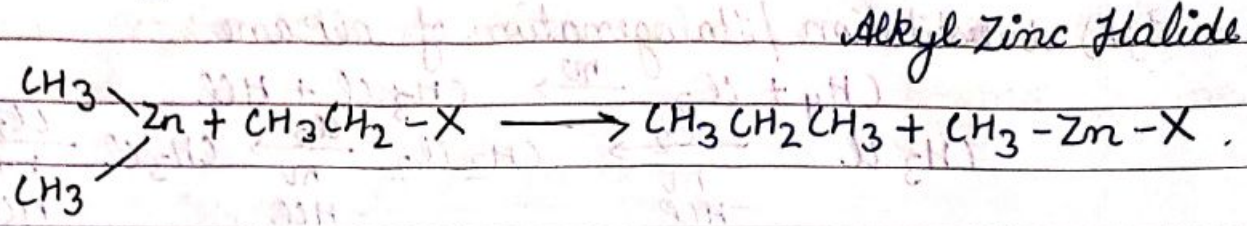 Alkyl Zinc Halide
CH3
Zn + CH3CH2-X ⟶ CH3CH2CH3 + CH3-Zn-X.
CH3